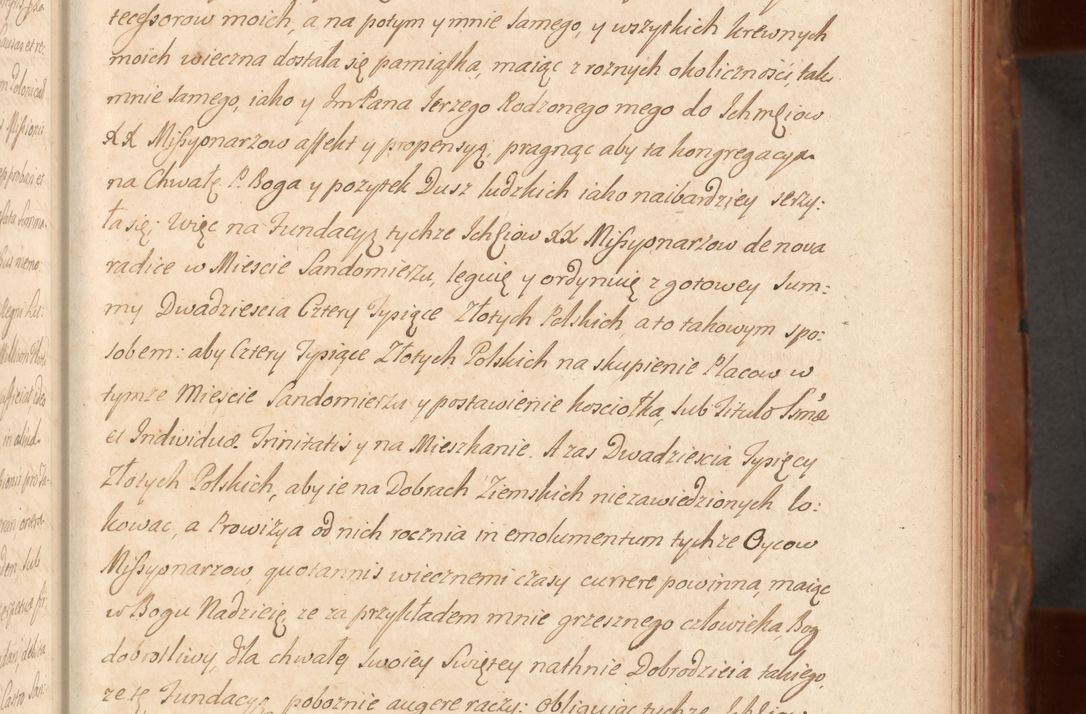 tecessorow moich, a na potym y mnie samego, y wszytkich krewnych
moich wieczna dostała się pamiątka, maiąc z roznych okoliczności, tak
mnie samego, iako y JmPana Jerzego Rodzonego mego do Ichmciow
XX Missyonarzow affekt y propensyą, pragnąc aby ta kongregacya
na Chwałę P. Boga y pozytek Dusz ludzkich iako naibardziey serzy:
ła się: Więc na Fundacyą tychze Ichciow XX Missyonarzow de nova
radice w Miescie Sandomierzu, leguię y ordynuię z gotowey Sum:
my Dwadziescia Cztery Tysiące Złotych Polskich, a to takowym spo:
sobem: aby Cztery Tysiące Złotych Polskich na skupienie Placow w
tymze Miescie Sandomierzu y postawienie kosciołka, sub Titulo Ssmæ
et Individuæ Trinitatis y na Mieszkanie. A zas Dwadziescia Tysięcy
Złotych Polskich, aby ie na Dobrach Ziemskich niezawiedzionych lo:
kowac, a Prowizya od nich rocznia in emolumentum tychze Oycow
Missyonarzow, quotannis wiecznemi czasy currere powinna, maiąc
w Bogu Nadzieię, ze za przykładem mnie grzesznego człowieka, Bog
dobrotliwy, dla chwały swoiey Swiętey nathnie Dobrodzieia takiego,
ze tę Fundacyą poboznie augere raczy: Obliguiąc tychze Ichciow